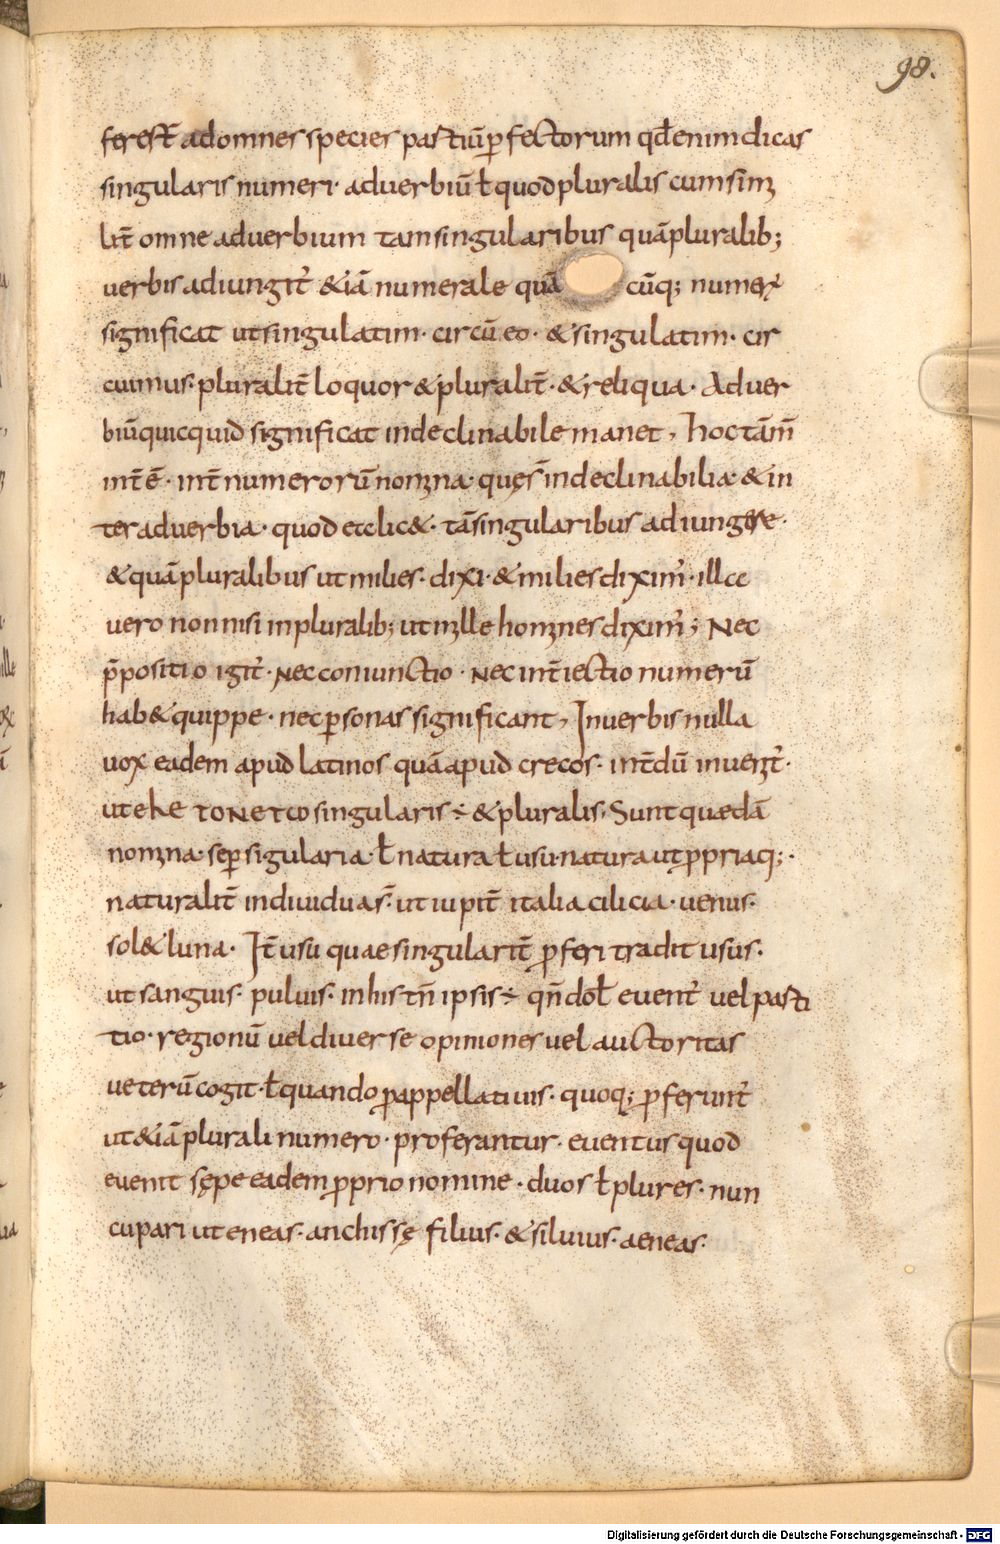 98.
ferest̄ ad omnes species partiū ꝑfectorum qđ enim dicas
singularis numeri· aduerbiū ł quod pluralis cum sim
lit̄ omne aduerbium tam singularibus quā pluralib;
uerbis adiungit᷑ &iā numerale quā cūq; numerū
significat ut singulatim· circūeo· & singulatim· cir
cuimus· pluralit̄ loquor & pluralit̄· & reliqua· Aduer
biū quicquid significat indeclinabile manet, hoc tām̄
int̄ē· int̄ numerorū nomina· quęs̄ indeclinabilia & in
ter aduerbia· quod etclic&· tā singularibus adiungere·
& quā pluralibus ut milies· dixi· & milies dixim᷑· illa
uero non nisi in pluralib; ut mille homines dixim᷑; Nec
p̄positio igit᷑· nec coniunctio· nec int̄iectio numerū
hab& quippe· nec ꝑsonas significant, In uerbis nulla
uox eadem apud latinos quā apud crecos· int̄dū inuenit᷑·
ut eke τONETω singularis ÷ & pluralis, Sunt quædā
nomina· seꝑ sigularia· ł natura ł usu· natura ut ꝓpria q;·
naturalit̄ indiuidua s̄· ut iupit̄ italia cilicia· uenus·
sol & luna· It̄ usu quae singularit̄ ꝓferi tradit usus·
ut sanguis· puluis· in his tn̄ ipsis ÷ qn̄do ł euenit᷑ uel parti
tio· regionū uel diuerse opiniones uel auctoritas
ueterū cogit· ł quando ꝓ appellatiuis· quoq; ꝓferunt᷑
ut &iā plurali numero· proferantur· euentus quod
euenit sępe eadem ꝓprio nomine· duos ł plures· nun
cupari ut eneas· anchissę filius· & siluius· aeneas·
Digitalisierung gefördert durch die Deutsche Forschungsgemeinschaft - DFG